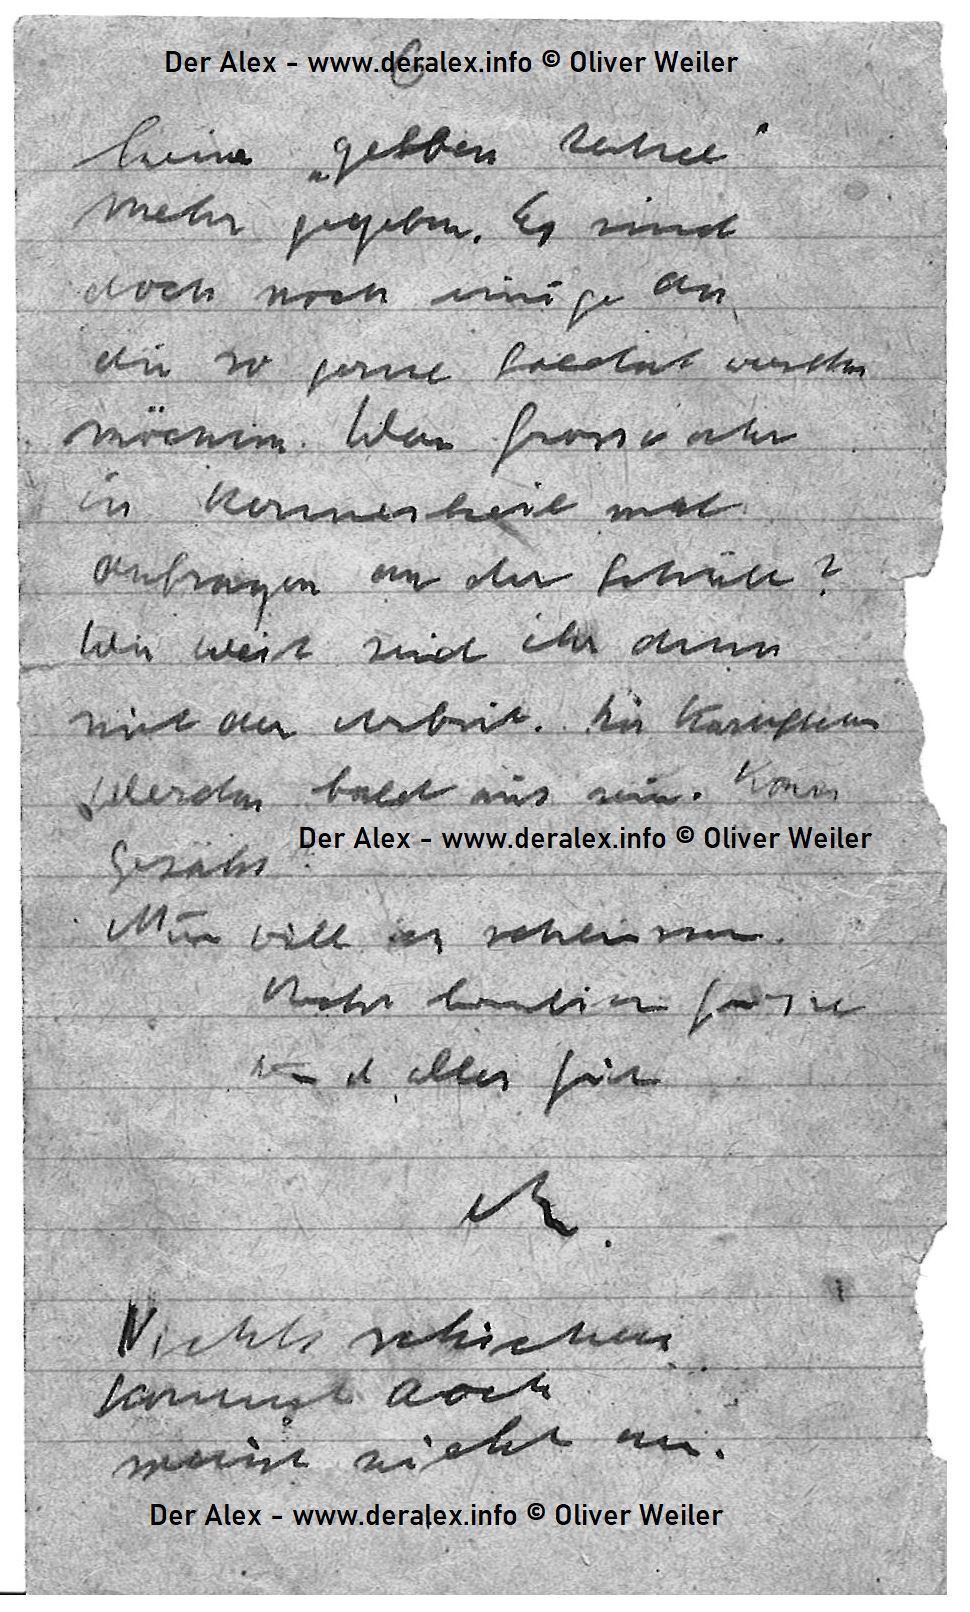 Der Alex - www.deralex.info © Oliver Weiler
6
keine „gelben
mehr gegeben. Es sind
doch noch einige da
die so gerne Soldat werden
möchten. War Grossvater
in mal
anfragen an der ?
Wie weit seid ihr denn
mit der Arbeit. Die Kartoffeln
werden bald aus sein. Korn
Gesäht
Nun will ich schliessen.
Recht herzliche Grüsse
und alles gute
Nichts schicken
kommt doch
meist nicht an.
Der Alex - www.deralex.info © Oliver Weiler
Der Alex - www.deralex.info © Oliver Weiler